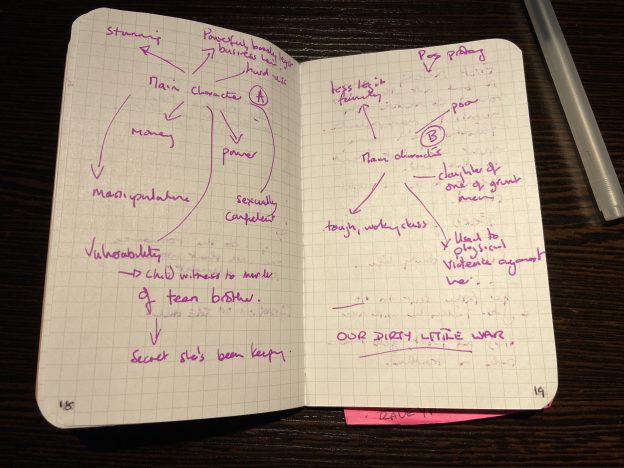 Stunning
Powerful, barely legit
business
hard
Main Character A
Money
power
Manipulative
sexually
confident
Vulnerability
→ Child witness to murder
of teen brother.
Secret she's been keeping.
18
less legit
family
poor
B
Main character
daughter of
one of grunt
men.
tough, working class
Used to
physical
violence against
her.
OUR DIRTY LITTLE WAR
19